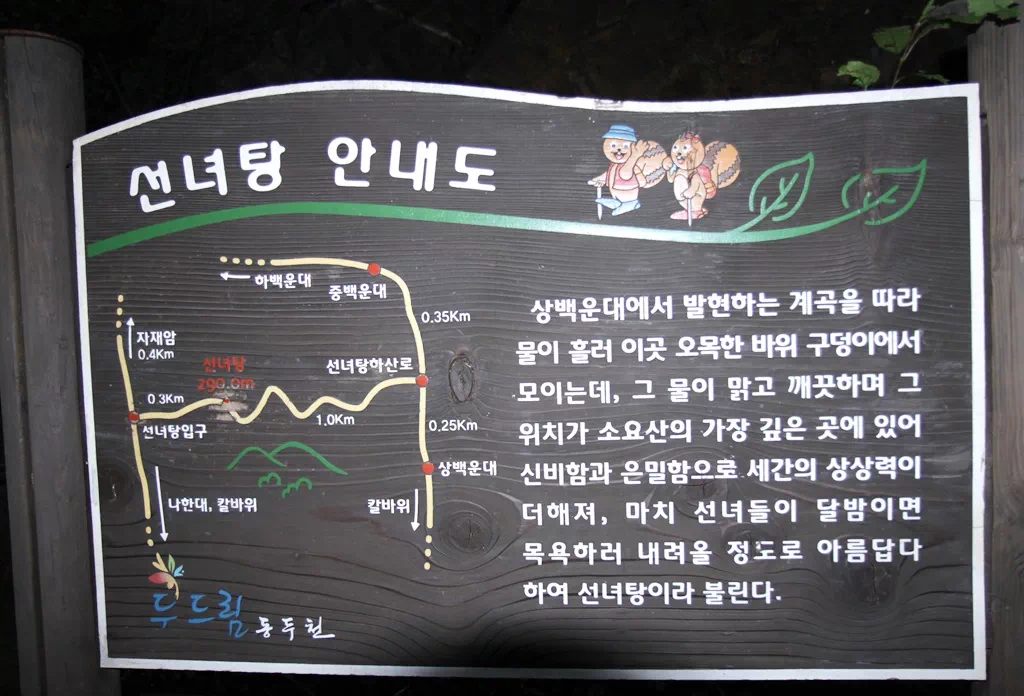 선녀탕 안내도
하백운대
중백운대
0.35Km
자재암
0.4Km
선녀탕
290.0m
선녀탕하산로
0.3Km
1.0Km
선녀탕입구
0.25Km
상백운대
나한대, 칼바위
칼바위
두드림 동두천
상백운대에서 발현하는 계곡을 따라
물이 흘러 이곳 오목한 바위 구덩이에서
모이는데, 그 물이 맑고 깨끗하며 그
위치가 소요산의 가장 깊은 곳에 있어
신비함과 은밀함으로 세간의 상상력이
더해져, 마치 선녀들이 달밤이면
목욕하러 내려올 정도로 아름답다
하여 선녀탕이라 불린다.